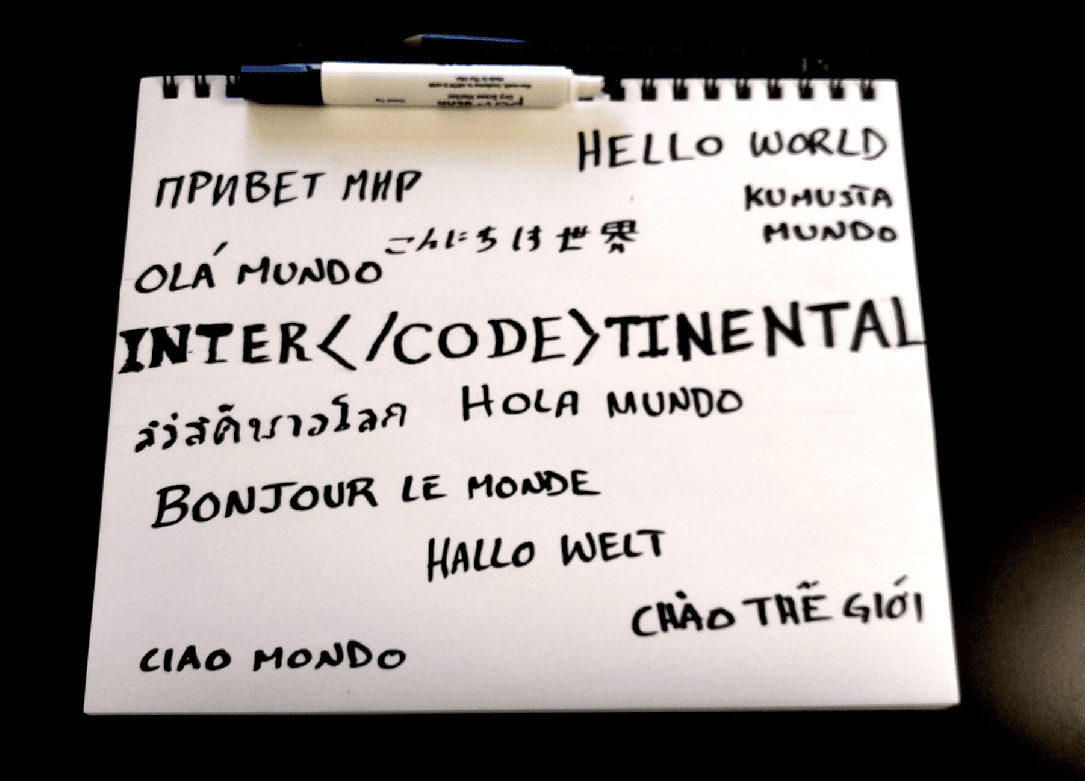 HELLO WORLD
ПРИВЕТ МИР
KUMUSTA
MUNDO
こんにちは世界
OLÁ MUNDO
INTER</CODE>TINENTAL
สวัสดีชาวโลก
HOLA MUNDO
BONJOUR LE MONDE
HALLO WELT
CHÀO THẾ GIỚI
CIAO MONDO
Dry Erase Marker
Made in The USA